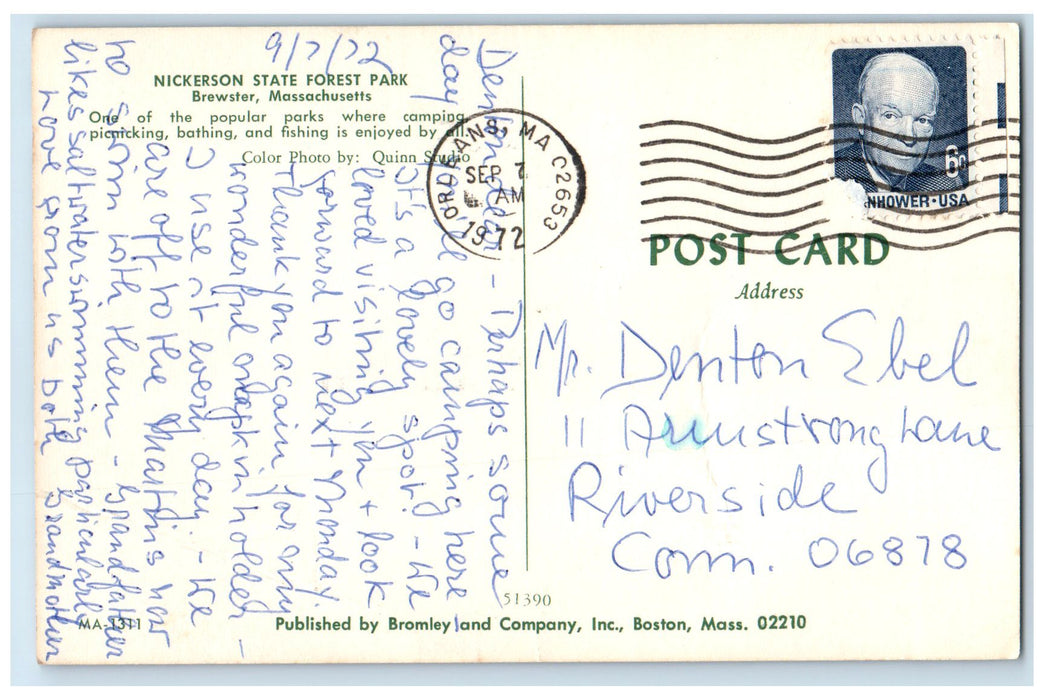 NICKERSON STATE FOREST PARK
Brewster, Massachusetts
One of the popular parks where camping,
picnicking, bathing, and fishing is enjoyed by all.
Color Photo by: Quinn Studio
9/7/72
Denton dear - Perhaps some
day you'll go camping here
It's a lovely spot! - We
loved visiting you + look
forward to next Monday.
Thank you again for my
wonderful napkin holder -
I use it every day. - We
are off to the Martins now
to swim with them - Grandfather
likes saltwater swimming particularly
Love from us both Grandmother
ORLEANS, MA 02653
SEP 7
AM
1972
6¢
NHOWER·USA
POST CARD
Address
Mr. Denton Ebel
11 Armstrong Lane
Riverside
Conn. 06878
51390
MA-1311
Published by Bromley and Company, Inc., Boston, Mass. 02210